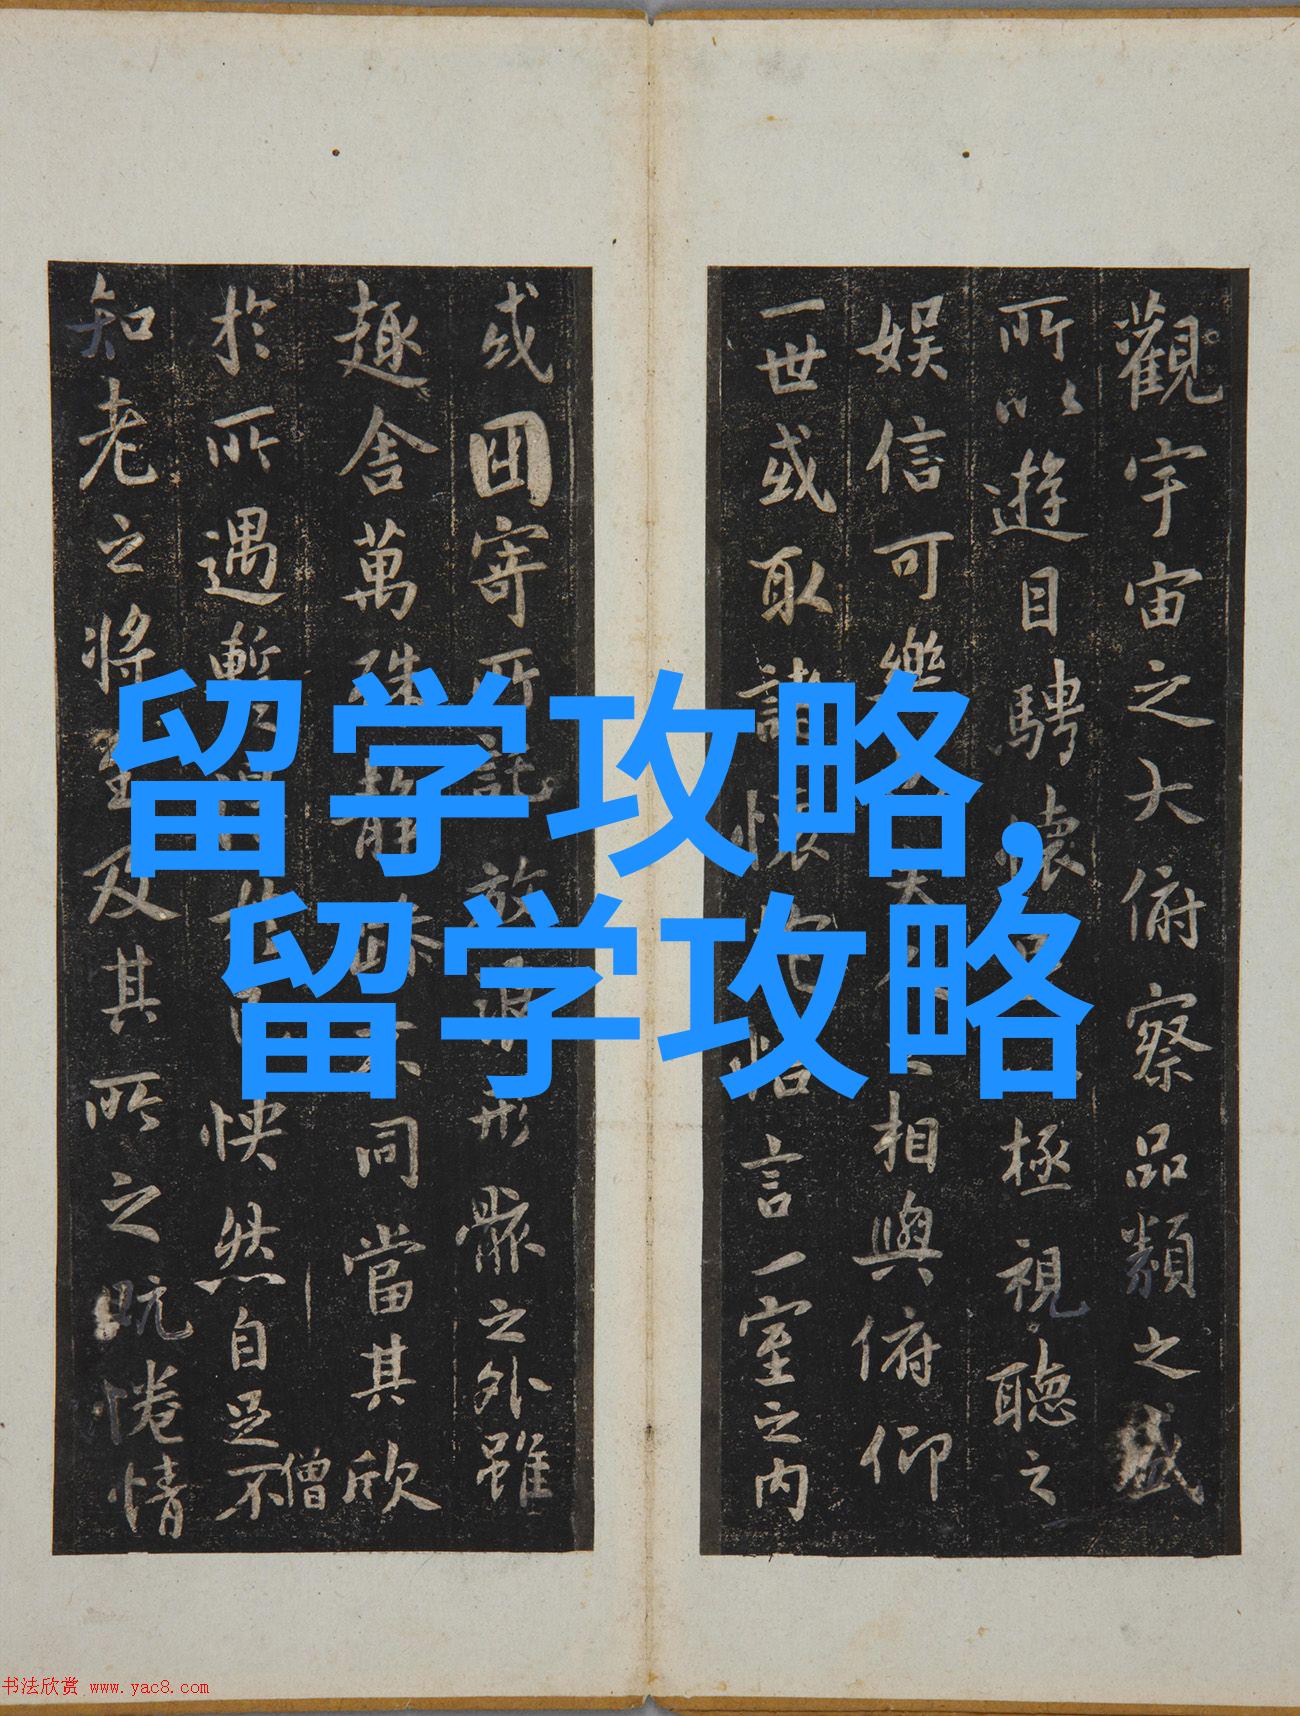 觀宇宙之大俯察品類之盛
所以遊目騁懷極視聽之
娛信可樂相與俯仰
一世或取諸懷悟言一室之內
或因寄所託放浪形骸之外雖
趣舍萬殊靜躁不同當其欣
於所遇暫怏然自足不
僧
知老之將至及其所之既惓情
留学攻略,
留学攻略
书法欣赏 www.yac8.com